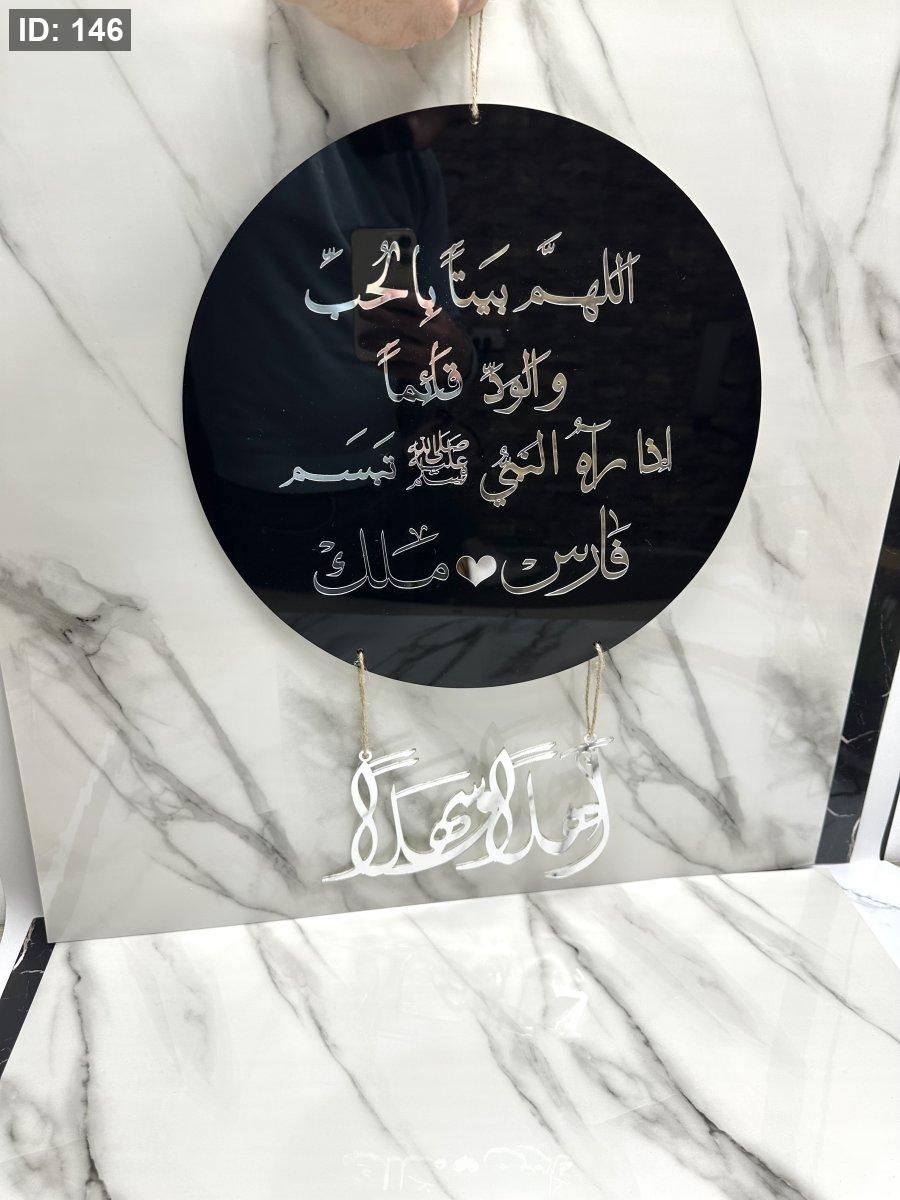 ID: 146
اللهمَّ بَيتاً بِالحُبِّ
والودِّ قائماً
إذا رآهُ النبيُّ ﷺ تبَسَم
فارس ♥ ملك
أهلاً وسهلاً